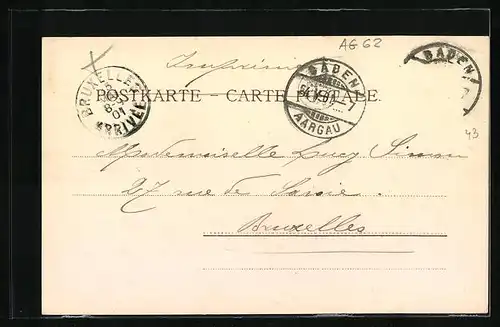 AG 62
Imprimé
BADEN
BADEN
AARGAU
BRUXELLES
8
01
ARRIVEE
POSTKARTE – CARTE POSTALE.
43
Mademoiselle Lucy Simon
27 rue de Savoie.
Bruxelles